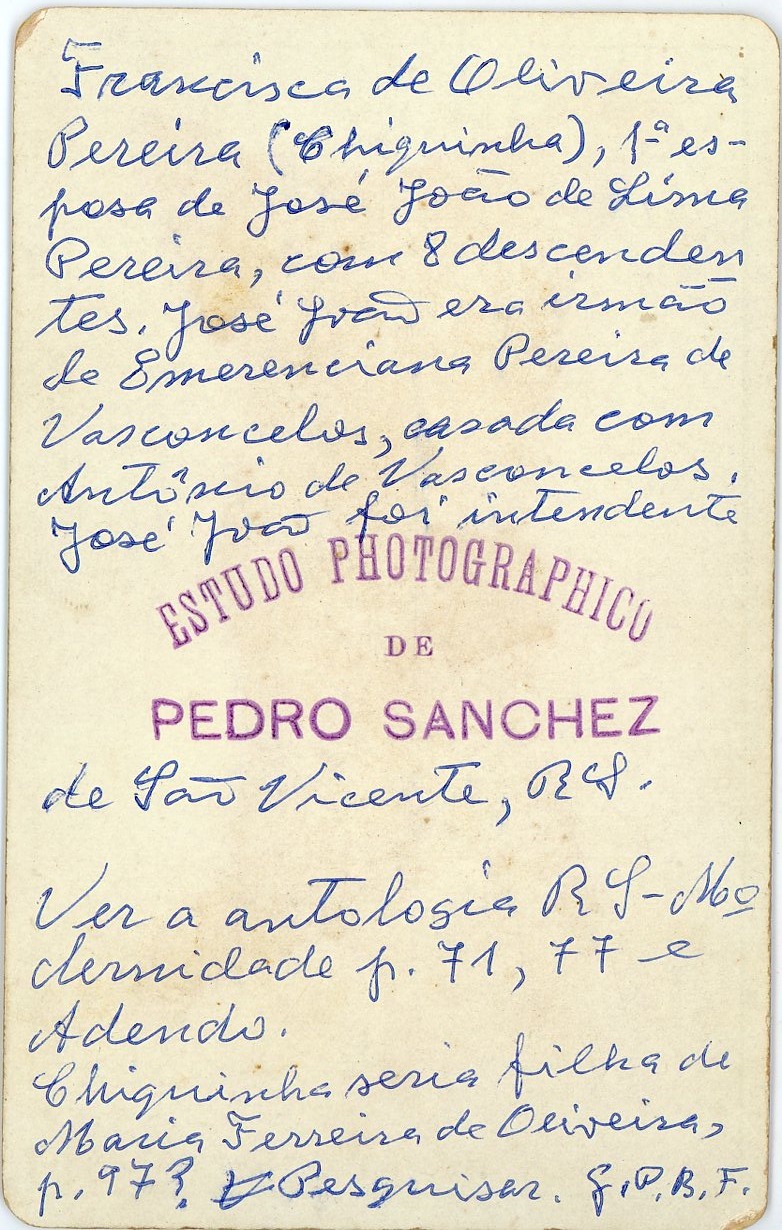 Francisca de Oliveira
Pereira (Chiquinha), 1ª es-
posa de José João de Lima
Pereira, com 8 descenden
tes. José João era irmão
de Emerenciana Pereira de
Vasconcelos, casada com
Antônio de Vasconcelos.
José João foi intendente
ESTUDO PHOTOGRAPHICO
DE
PEDRO SANCHEZ
de São Vicente, RS.
Ver a antologia RS-Mo
dernidade p. 71, 77 e
Adendo.
Chiquinha seria filha de
Maria Ferreira de Oliveira,
p. 97? Pesquisar. G.P.B.F.